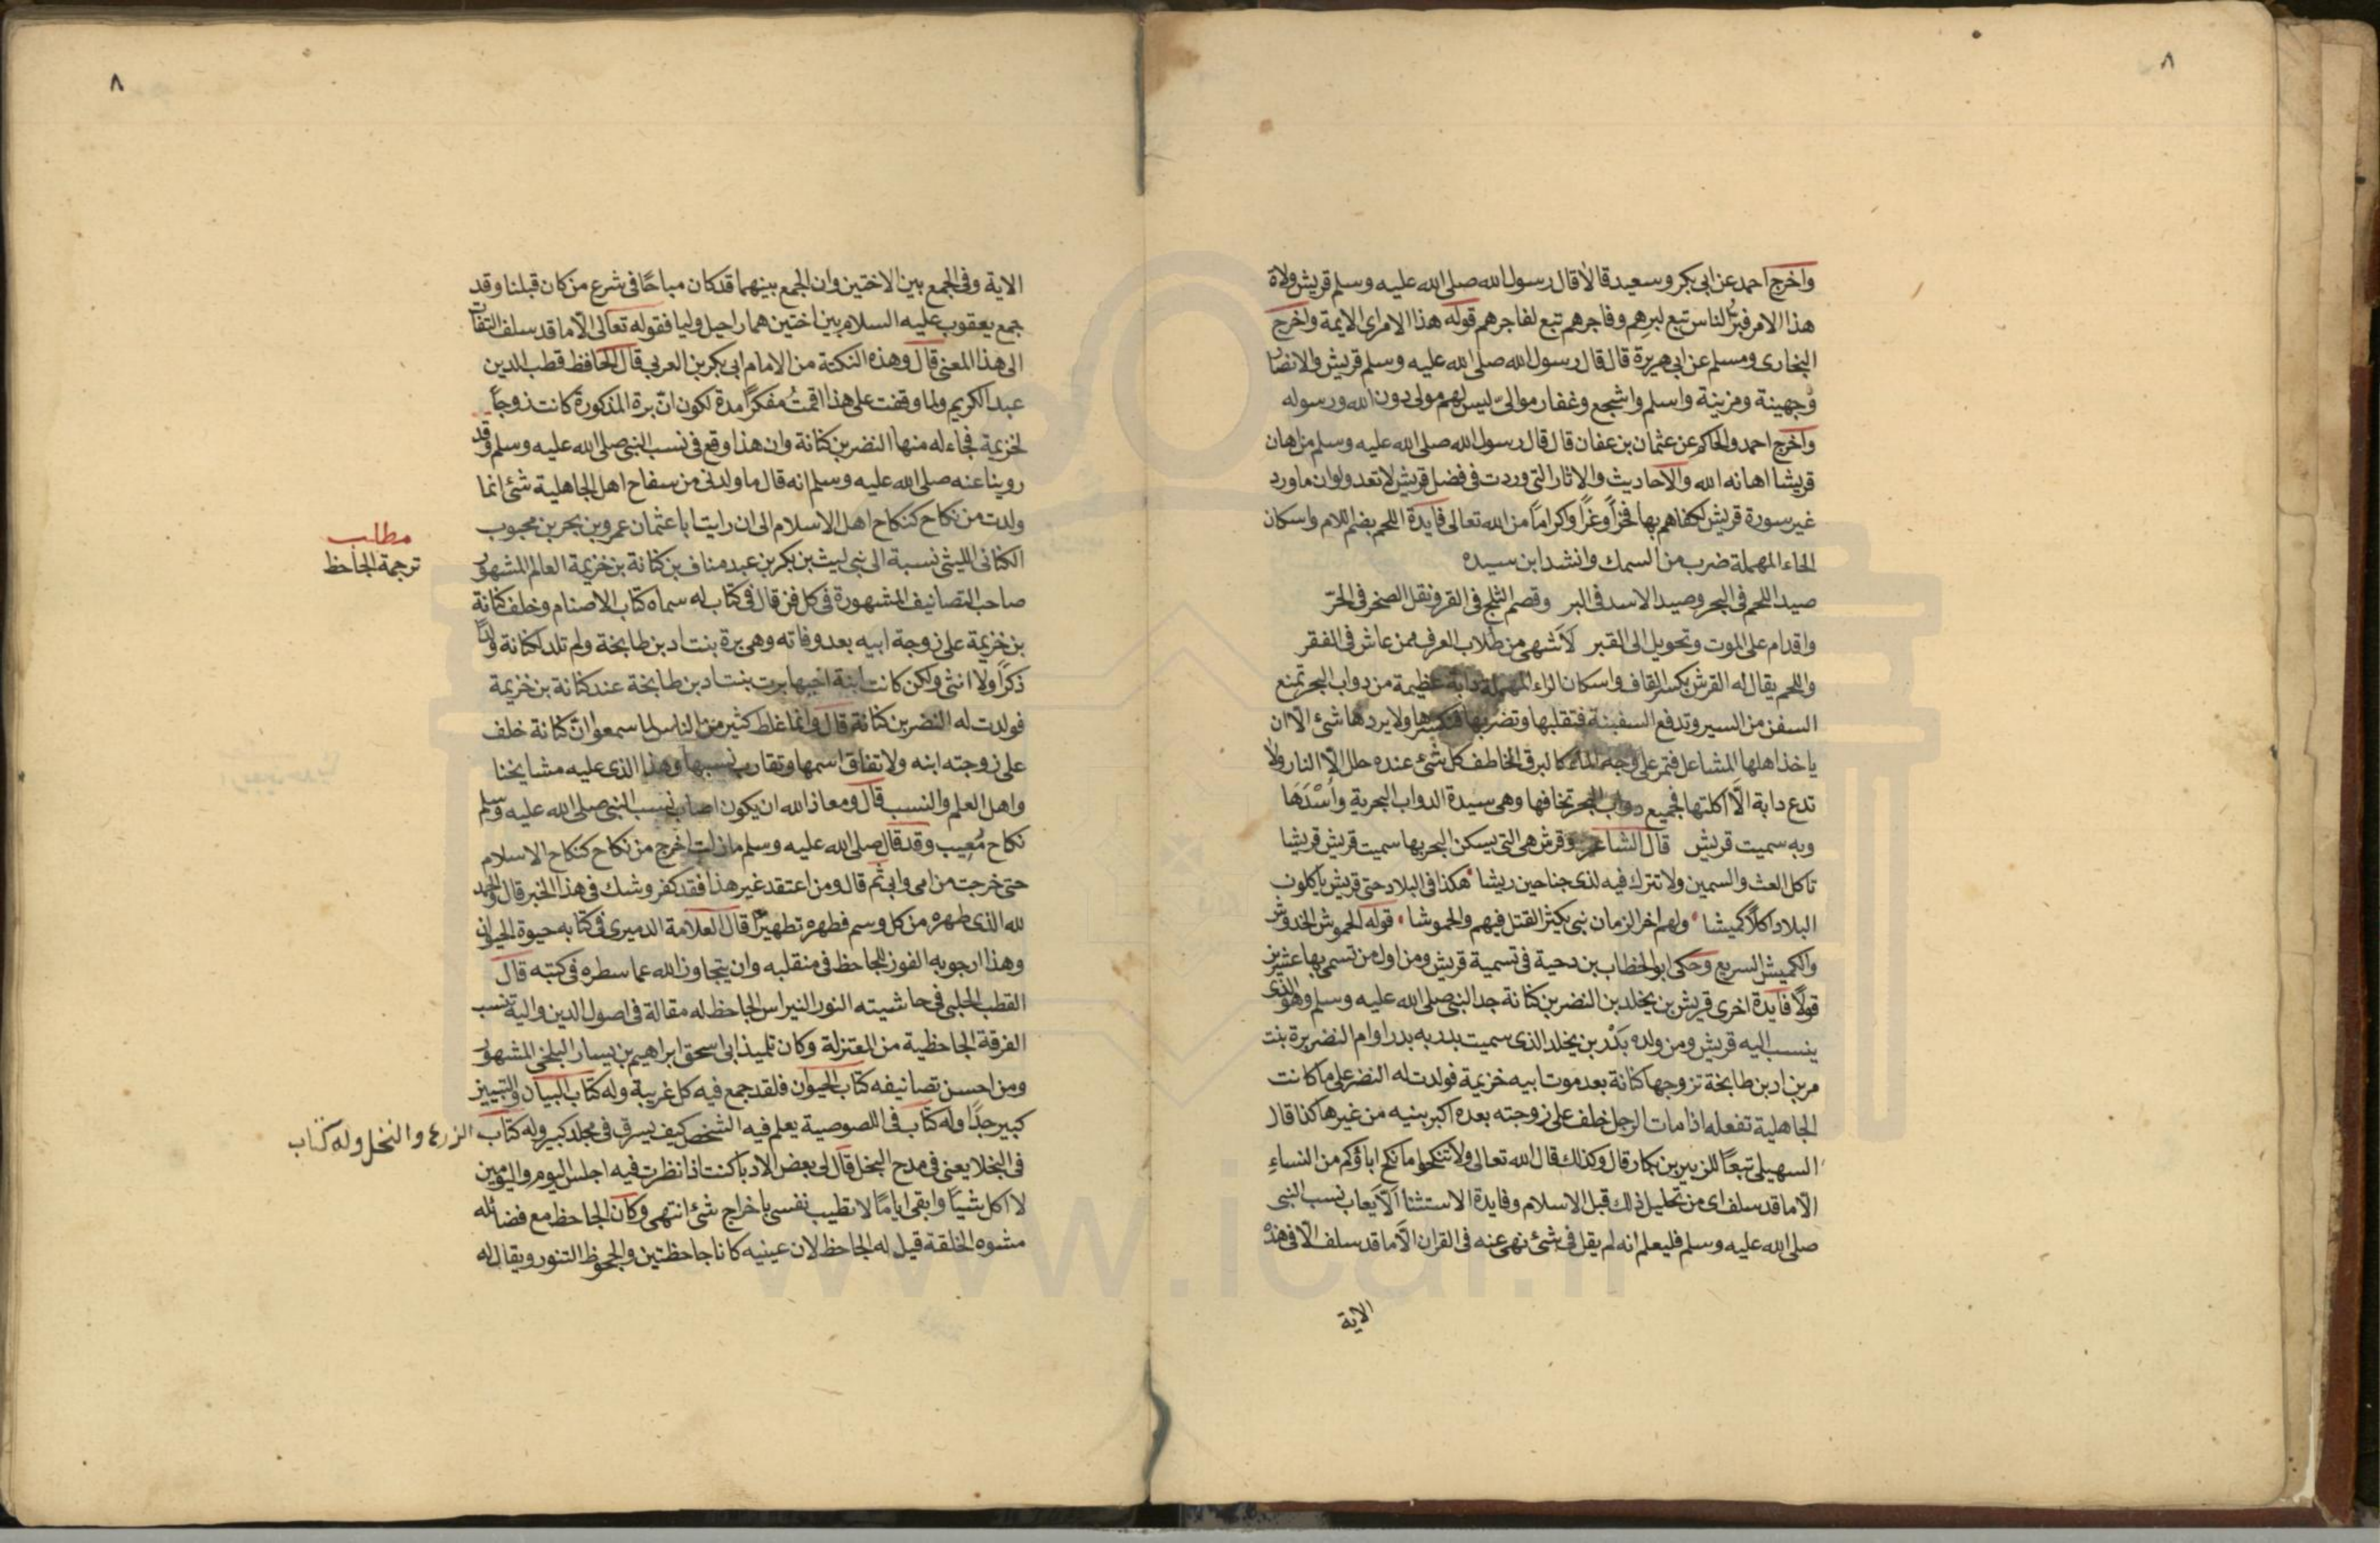 ٨
واخرج احمد عن ابى بكر وسعيد قالا قال رسول الله صلى الله عليه وسلم قريش ولاة
هذا الامر فبرّ الناس تبع لبرهم وفاجرهم تبع لفاجرهم قوله هذا الامر اى الايمة واخرج
البخارى ومسلم عن ابى هريرة قال قال رسول الله صلى الله عليه وسلم قريش والانصار
وجهينة ومزينة واسلم واشجع وغفار موالىّ ليس لهم مولى دون الله ورسوله
واخرج احمد والحاكم عن عثمان بن عفان قال قال رسول الله صلى الله عليه وسلم من اهان
قريشا اهانه الله والاحاديث والاثار التى وردت فى فضل قريش لا تعد ولو ان ما ورد
غير سورة قريش لكفاهم بها فخرًا وغرًا واكرامًا من الله تعالى فايدة اللحم بضم اللام واسكان
الحاء المهملة ضرب من السمك وانشد ابن سيده
صيد اللحم فى البحر وصيد الاسد فى البر وقصم الثلج فى القر ونقل الصخر فى الحرّ
واقدام على الموت وتحويل الى القبر لاشهى من طلاب العرف ممن عاش فى الفقر
واللحم يقال له القرش بكسر القاف واسكان الراء المهملة دابة عظيمة من دواب البحر تمنع
السفن من السير وتدفع السفينة فتقلبها وتضربها فتكسرها ولا يردها شئ الّا ان
ياخذ اهلها المشاعل فتمر على وجه الماء كالبرق الخاطف كل شئ عنده حلل الّا النار ولا
تدع دابة الّا اكلتها فجميع دواب البحر تخافها وهى سيدة الدواب البحرية واشدها
وبه سميت قريش قال الشاعر وقرش هى التى يسكن البحر بها سميت قريش قريشا
تاكل الغث والسمين ولا تترك فيه لذى جناحين ريشا هكذا فى البلاد حتى قريش ياكلون
البلاد اكلًا كميشا ولهم اخر الزمان نبى يكثر القتل فيهم والخموشا قوله الخموش الخدوش
والكميش السريع وحكى ابو الخطاب بن دحية فى تسمية قريش ومن اول من تسمى بها عشرين
قولًا فايدة اخرى قريش بن يخلد بن النضر بن كنانة جد النبى صلى الله عليه وسلم وهو الذى
ينسب اليه قريش ومن ولده بَدْر بن يخلد الذى سميت بدر به بدرا وام النضر برة بنت
مر بن اد بن طابخة تزوجها كنانة بعد موت ابيه خزيمة فولدت له النضر على ما كانت
الجاهلية تفعله اذا مات الرجل خلف على زوجته بعده اكبر بنيه من غيرها كذا قال
السهيلى تبعًا للزبير بن بكار قال وكذلك قال الله تعالى ولا تنكحوا ما نكح اباؤكم من النساءِ
الّا ما قد سلف اى من تحليل ذلك قبل الاسلام وفايدة الاستثنا الّا يعاب نسب النبى
صلى الله عليه وسلم فليعلم انه لم يقل فى شئ نهى عنه فى القران الّا ما قد سلف الّا فى هذه
الاية
٨
الاية وفى الجمع بين الاختين وان الجمع بينهما قد كان مباحًا فى شرع من كان قبلنا وقد
جمع يعقوب عليه السلام بين اختين هما راحيل وليا فقوله تعالى الّا ما قد سلف التفات
الى هذا المعنى قال وهذه النكتة من الامام ابى بكر بن العربى قال الحافظ قطب الدين
عبد الكريم ولما وقفت على هذا اقمتُ مفكرًا مدة لكون انّ برة المذكورة كانت زوجًا
لخزيمة فجاء له منها النضر بن كنانة وان هذا وقع فى نسب النبى صلى الله عليه وسلم وقد
روينا عنه صلى الله عليه وسلم انه قال ما ولدنى من سفاح اهل الجاهلية شئ انما
ولدت من نكاح كنكاح اهل الاسلام الى ان رايت ابا عثمان عمرو بن بحر بن محبوب
مطلب
ترجمة الجاحظ
الكنانى الليثى نسبة الى نبى ليث بن بكر بن عبد مناف بن كنانة بن خزيمة العالم المشهور
صاحب التصانيف المشهورة فى كل فن قال فى كتاب له سماه كتاب الاصنام وخلف كنانة
بن خزيمة على زوجة ابيه بعد وفاته وهى برة بنت اد بن طابخة ولم تلد لكنانة ولدًا
ذكرًا ولا انثى ولكن كانت ابنة اخيها برت بنت اد بن طابخة عند كنانة بن خزيمة
فولدت له النضر بن كنانة قال وانما غلط كثير من الناس لما سمعوا انّ كنانة خلف
على زوجته ابنه ولاتفاق اسمها وتقارب نسبها وهذا الذى عليه مشايخنا
واهل العلم والنسب قال ومعاذ الله ان يكون اصاب نسب النبى صلى الله عليه وسلم
نكاح مُعيب وقد قال صلى الله عليه وسلم ما زلت اخرج من نكاح كنكاح الاسلام
حتى خرجت من امى وابى ثم قال ومن اعتقد غير هذا فقد كفر وشك فى هذا الخبر قال والحمد
لله الذى طهره من كل وسم فطهره تطهيرًا قال العلامة الدميرى فى كتابه حيوة الحيوان
وهذا ارجو به الفوز للجاحظ فى منقلبه وان يتجاوز الله عما سطره فى كتبه قال
القطب الحلبى فى حاشيته النور النبراس الجاحظ له مقالة فى اصول الدين واليه تنسب
الفرقة الجاحظية من المعتزلة وكان تلميذ ابى اسحق ابراهيم بن يسار البلخى المشهور
ومن احسن تصانيفه كتاب الحيوان فلقد جمع فيه كل غريبة وله كتاب البيان والتبيين
كبير جدًا وله كتاب فى اللصوصية يعلم فيه الشخص كيف يسرق فى مجلد كبير وله كتاب الزرع والنخل وله كتاب
فى البخلا يعنى فى مدح البخل قال لى بعض الادبا كنت اذا نظرت فيه اجلس اليوم واليومين
لا اكل شيًا وابقى ايامًا لا تطيب نفسى باخراج شئ انتهى وكان الجاحظ مع فضائله
مشوه الخلقة قيل له الجاحظ لان عينيه كانا جاحظتين والجحوظ التنور ويقال له
www.ical.ir